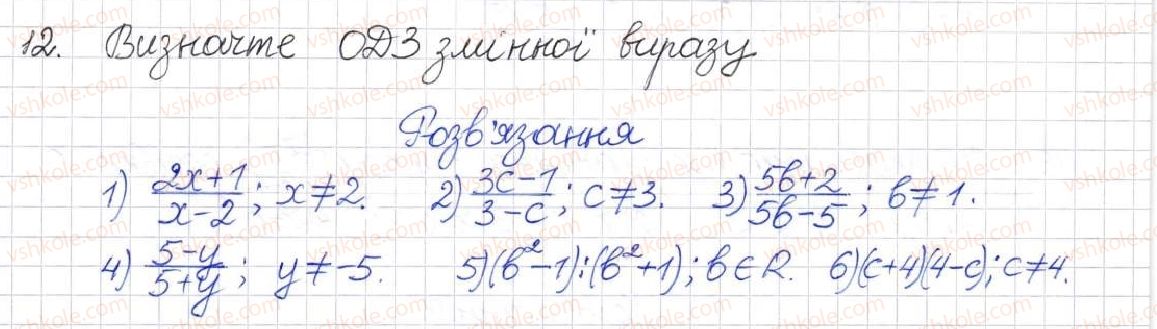 12. Визначте ОДЗ змінної виразу
Розв'язання
1) (2x+1)/(x-2); x≠2. 2) (3c-1)/(3-c); c≠3. 3) (5b+2)/(5b-5); b≠1.
4) (5-y)/(5+y); y≠-5. 5) (b²-1):(b²+1); b∈R. 6) (c+4)(4-c); c≠4.